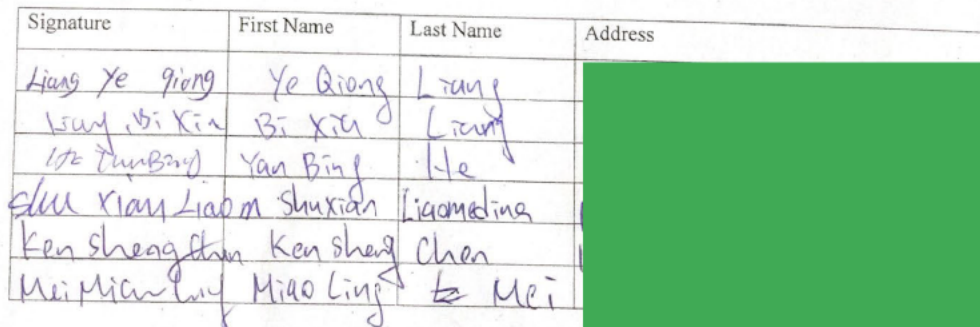 Signature First Name Last Name Address
Liang Ye qiong Ye Qiong Liang
Bi Xia Liang
He YanBing Yan Bing He
Shu Xian Liao m Shuxian Liaomedina
Ken Sheng Chen Ken Sheng Chen
Mei Miao Ling Miao Ling Mei